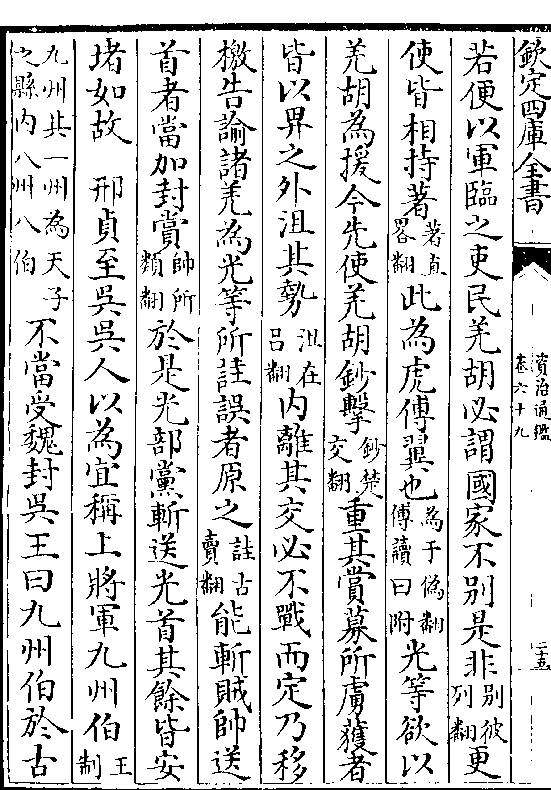 欽定四庫全書
資治通鑑
卷六十九
二十五
若便以軍臨之吏民羌胡必謂國家不别是非别彼列翻更
使皆相持著著直畧翻此為虎傅翼也為于偽翻傅讀曰附光等欲以
羌胡為援今先使羌胡鈔擊鈔楚交翻重其賞募所虜獲者
皆以畀之外沮其勢沮在呂翻内離其交必不戰而定乃移
檄告諭諸羌為光等所詿誤者原之詿古賣翻能斬賊帥送
首者當加封賞帥所類翻於是光部黨斬送光首其餘皆安
堵如故 邢貞至吳吳人以為宜稱上將軍九州伯王制
九州其一州為天子之縣内八州八伯不當受魏封吳王曰九州伯於古